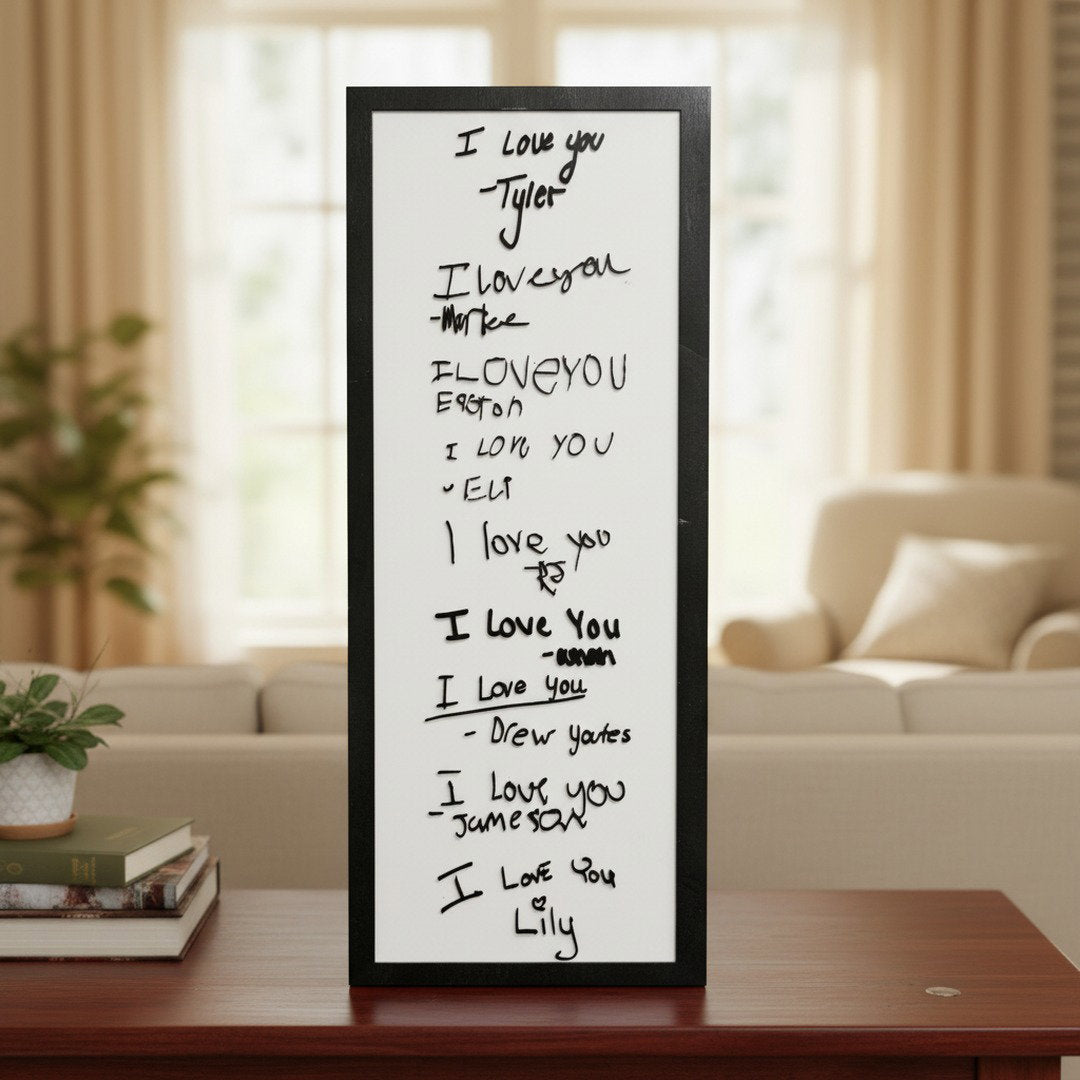 I Love you
-Tyler
I love you
I LOVE YOU
Easton
I LOVE YOU
-ELI
I love you
I Love You
I Love you
- Drew yates
I Love you
- Jameson
I Love You
Lily